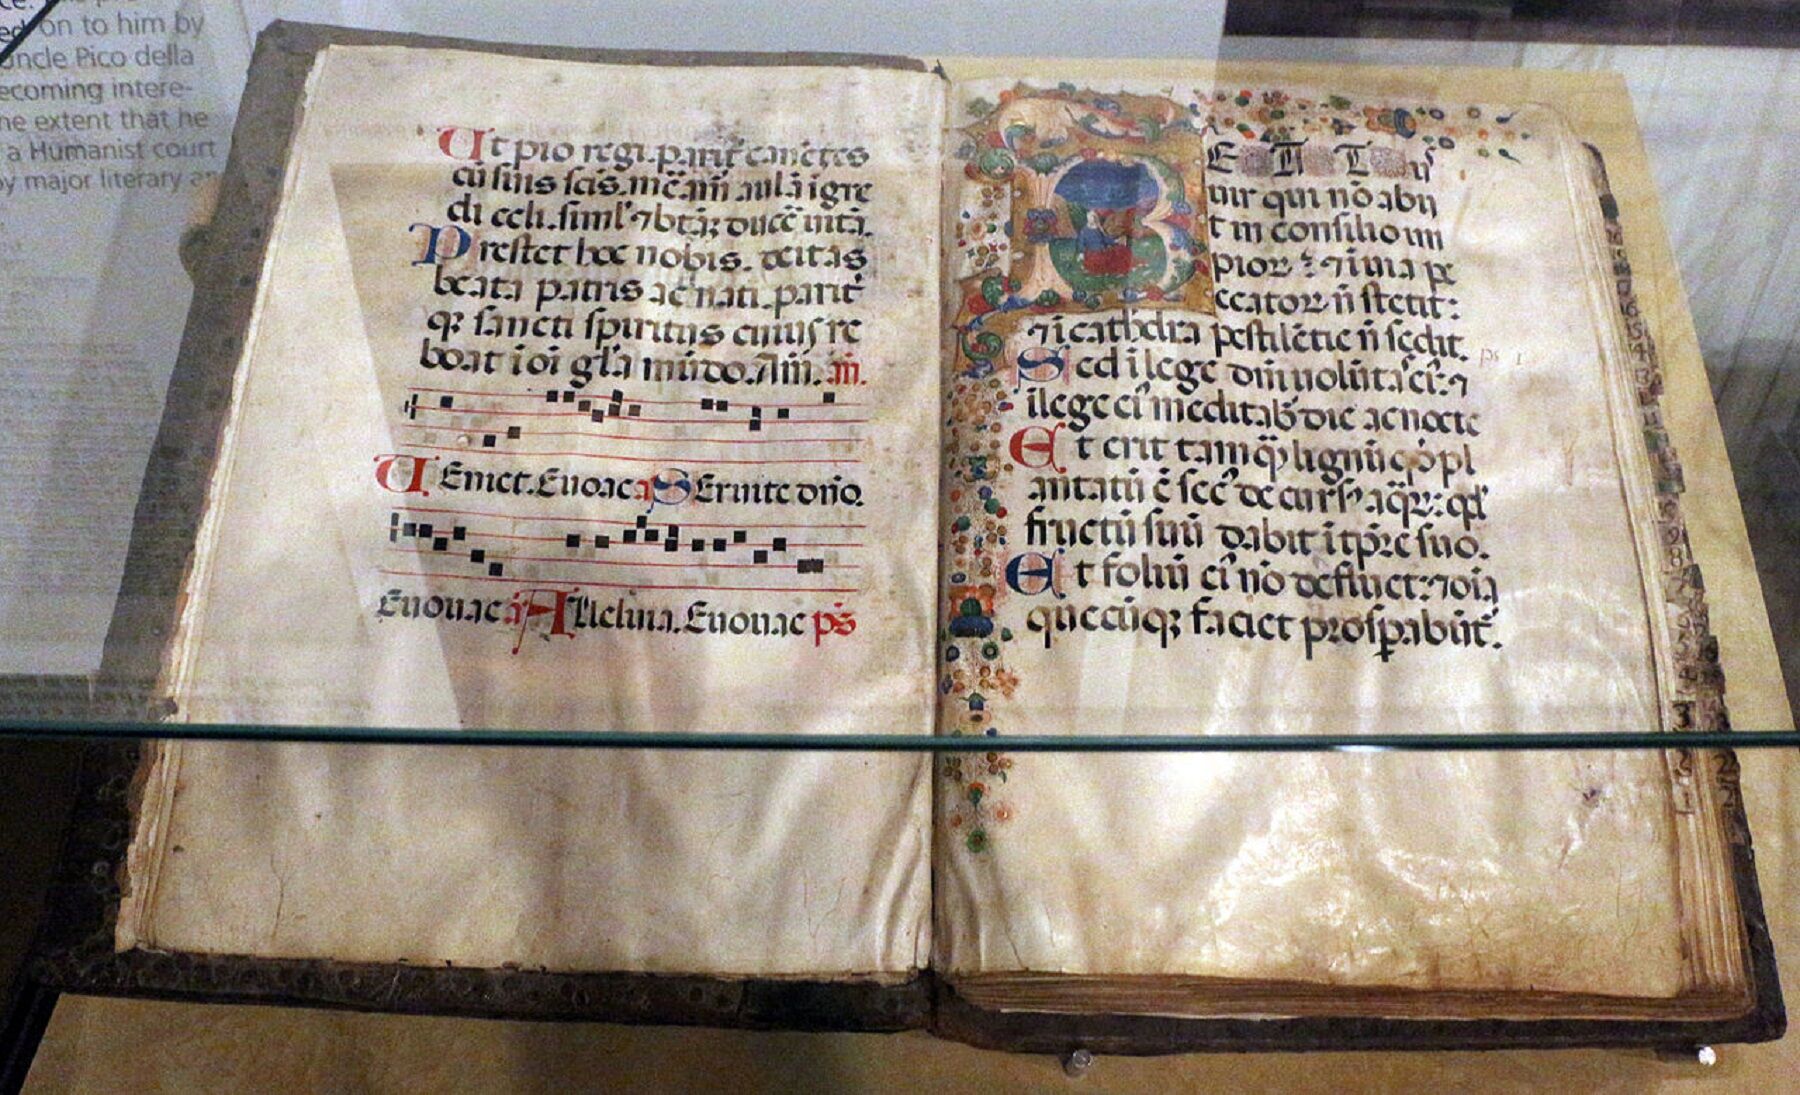 on to him by
uncle Pico della
ecoming intere-
he extent that he
a Humanist court
by major literary an
Ut pio regi parit̃ canētes
cū suis scīs. mc̄am̄ aulā īgre
di celi. siml̉ ⁊ bt̄āꝫ ducẽ vitā.
Prestet hoc nobis. deitas
beata patris ac nati. parit̃
qꝫ sancti spiritus cuius re
boat ī oī gl̄a mūdo. Am̄. añ.
VEnict. Euouae a SEruite dño.
Euouae ã Alleluia. Euouae p̄s
BEATus
uir qui nō abij
t in consilio im
pioꝝ : ⁊ ī uia pe
ccatoꝝ ñ stetit:
⁊ ī cathedra pestilētie ñ sedit.
ps 1
Sed ī lege dm̄ uolūtas eiꝰ: ⁊
ī lege eiꝰ meditabr̃ die ac nocte
Et erit tamq̃ lignū qd̓ pl
antatū ē sec̓ decursꝰ aq̃ꝝ: qd̓
fructū suū dabit ī tp̄re suo.
Et foliū eiꝰ nō defluet: ⁊ oīa
quecūqꝫ faciet prosꝑabūt̃.